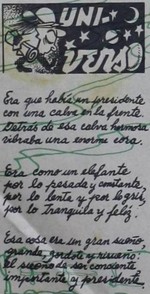 UNI-
VERSO
Era que había un presidente
con una calva en la frente.
Detrás de esa calva hermosa
vibraba una enorme cosa.
Era como un elefante
por lo pesada y constante,
por lo lenta y por lo gris,
por lo tranquila y feliz.
Esa cosa era un gran sueño,
grande, gordote y risueño:
el sueño de ser
importante y presidente.